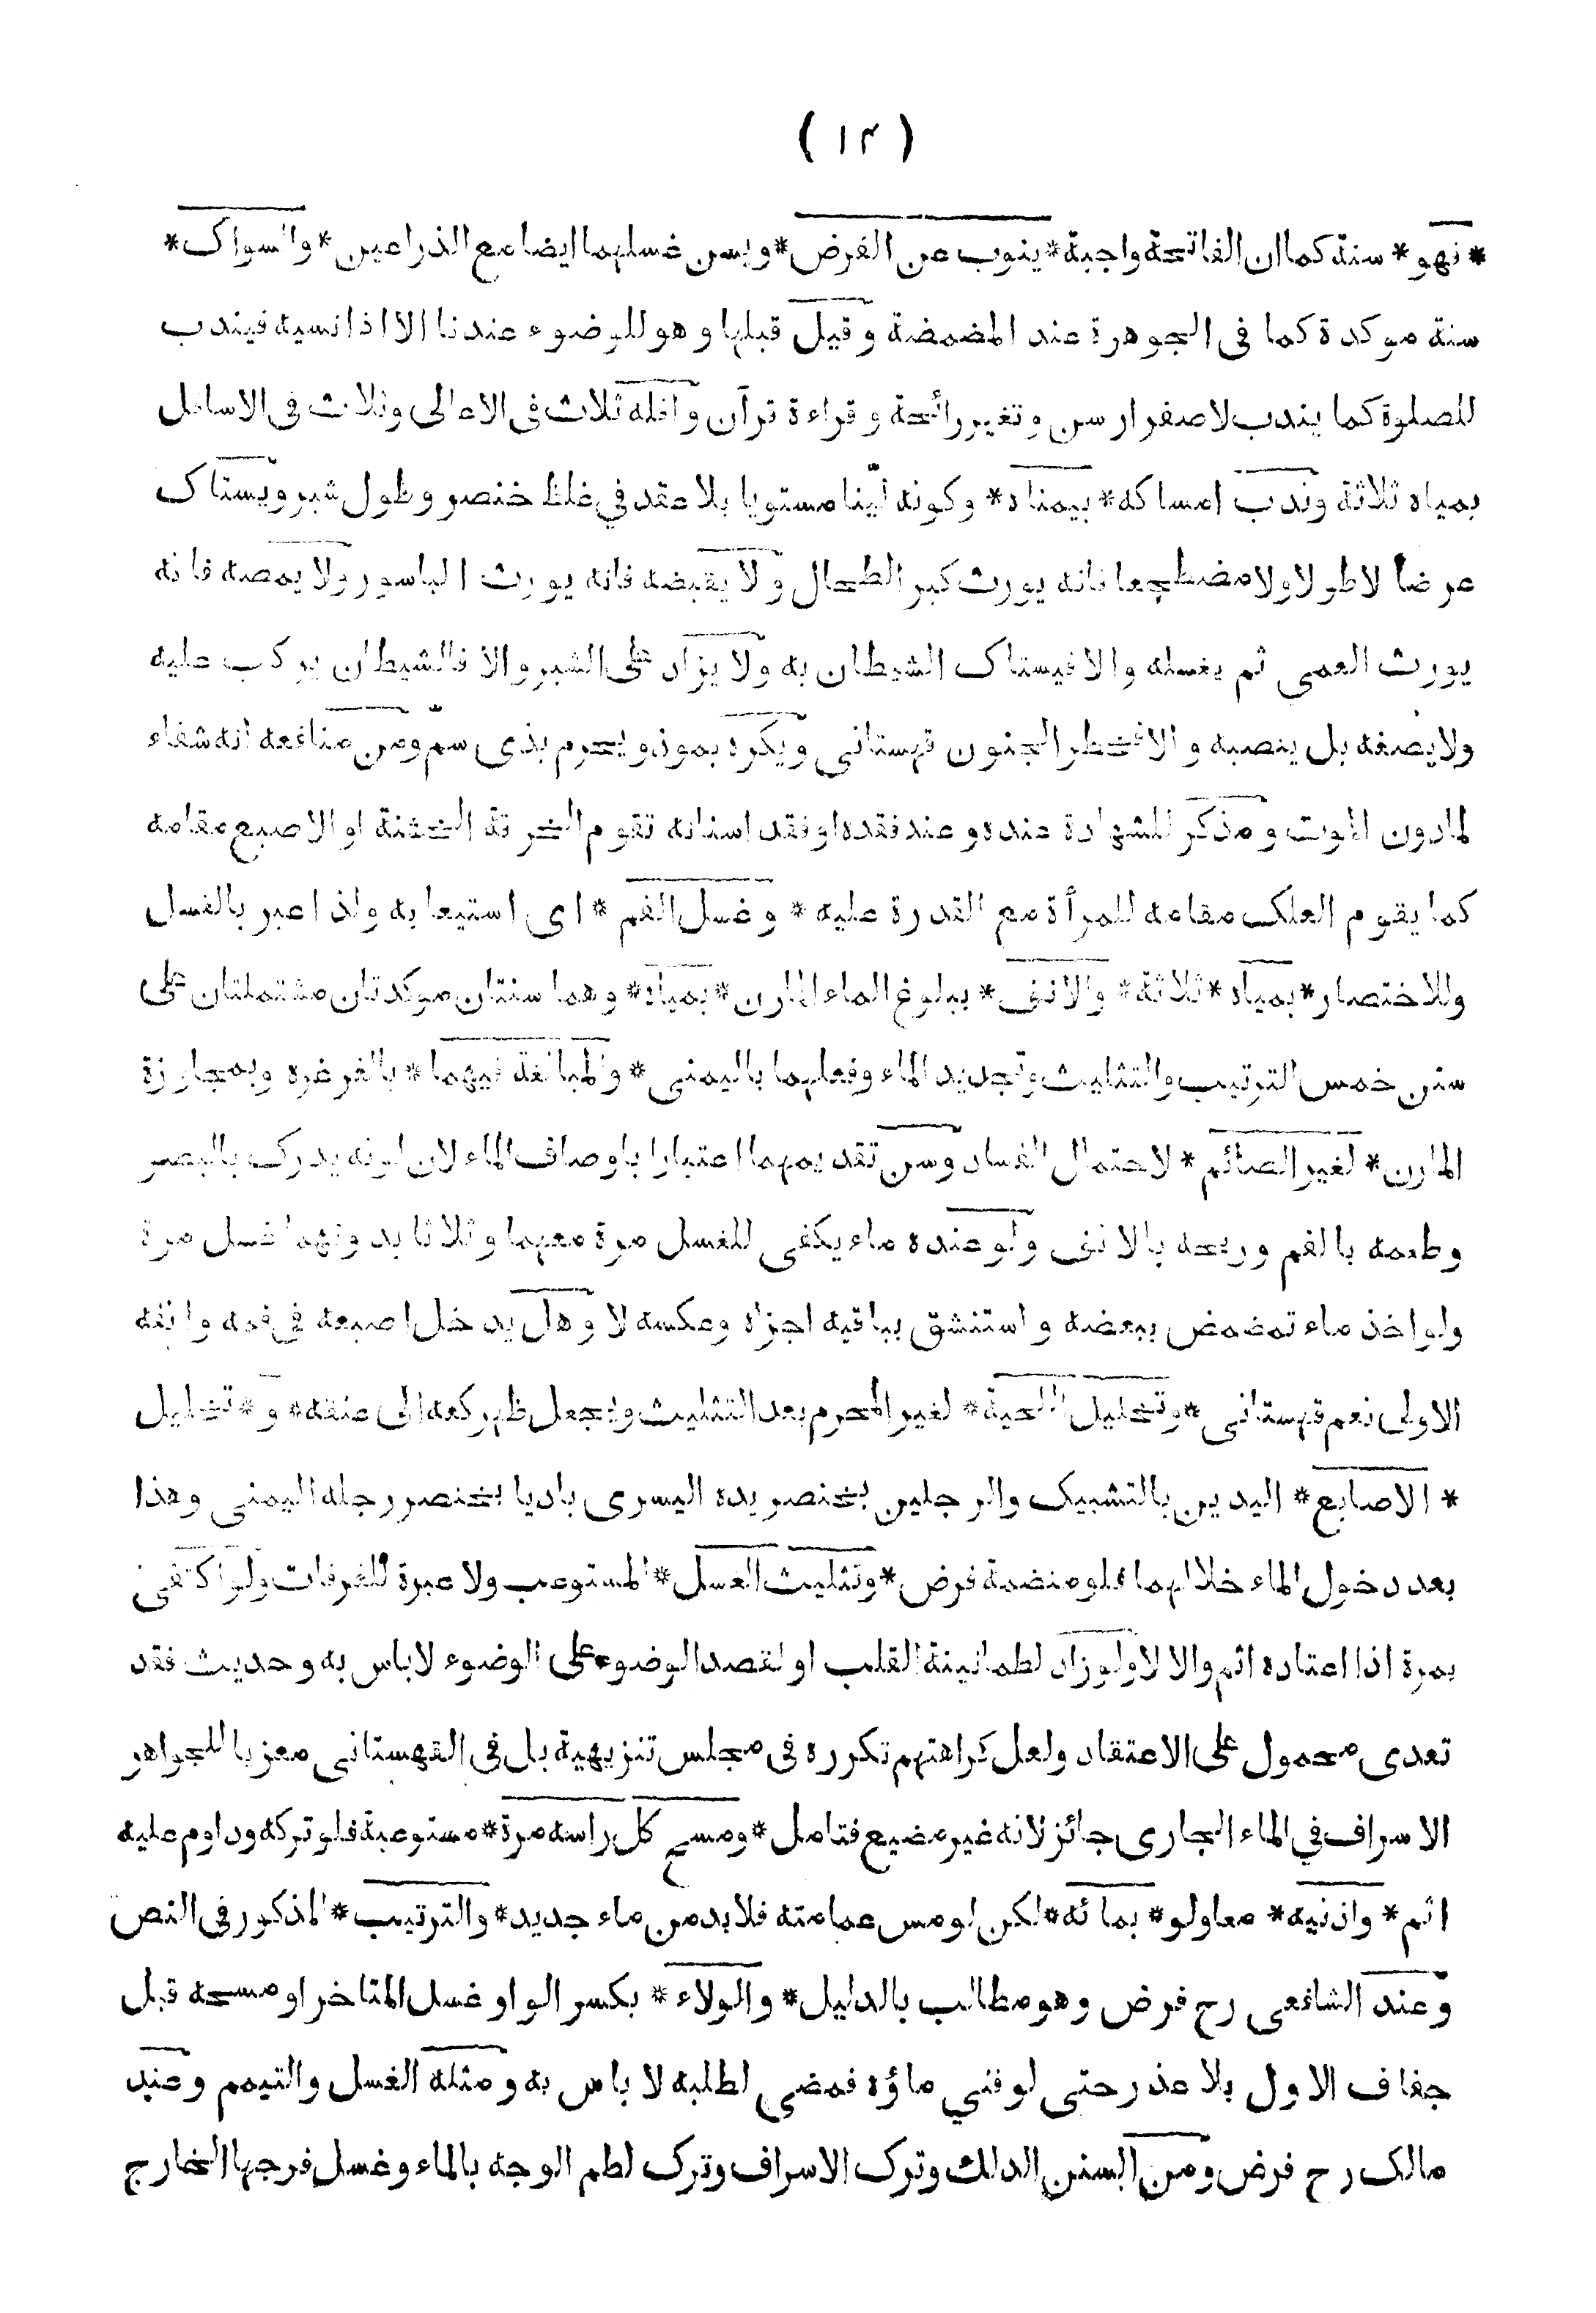 ( ١٣ )
* فهو * سنة كما ان الفاتحة واجبة * ينوب عن الفرض * ويسن غسلهما ايضا مع الذراعين * والسواك *
سنة موكدة كما فى الجوهرة عند المضمضة وقيل قبلها وهو للوضوء عندنا الا اذا نسيه فيندب
للصلوة كما يندب لاصفرار سن وتغير رائحة وقراءة قرآن واقله ثلاث فى الاعالى وثلاث فى الاسافل
بمياه ثلاثة وندب امساكه * بيمناه * وكونه لينا مستويا بلا عقد في غلظ خنصر وطول شبر ويستاك
عرضا لا طولا ولا مضطجعا فانه يورث كبر الطحال ولا يقبضه فانه يورث الباسور ولا يمصه فانه
يورث العمى ثم يغسله والا فيستاك الشيطان به ولا يزاد على الشبر والا فالشيطان يركب عليه
ولا يضعه بل ينصبه والا فخطر الجنون قهستانى ويكره بموذ ويحرم بذى سم ومن منافعه انه شفاء
لمادون الموت ومذكر للشهادة عنده وعند فقده او فقد اسنانه تقوم الخرقة الخشنة او الاصبع مقامه
كما يقوم العلك مقامه للمرأة مع القدرة عليه * وغسل الفم * اى استيعابه ولذا عبر بالغسل
وللاختصار * بمياه * ثلاثة * والانف * ببلوغ الماء المارن * بمياه * وهما سنتان موكدتان مشتملتان على
سنن خمس الترتيب والتثليث وتجديد الماء وفعلهما باليمنى * والمبالغة فيهما * بالغرغره وبمجارزة
المارن * لغير الصائم * لاحتمال الفساد وسن تقديمهما اعتبارا باوصاف الماء لان لونه يدرك بالبصر
وطعمه بالفم وريحه بالانف ولو عنده ماء يكفى للغسل مرة معهما وثلاثا بدونهما غسل مرة
ولو اخذ ماء تمضمض ببعضه واستنشق بباقيه اجزاه وعكسه لا وهل يدخل اصبعه في فمه وانفه
الاولى نعم قهستانى * وتخليل اللحية * لغير المحرم بعد التثليث ويجعل ظهر كفه الى عنقه * و * تخليل
* الاصابع * اليدين بالتشبيك والرجلين بخنصر يده اليسرى باديا بخنصر رجله اليمنى وهذا
بعد دخول الماء خلالهما فلو منضمة فرض * وتثليث الغسل * المستوعب ولا عبرة للغرفات ولو اكتفى
بمرة اذا اعتاده اثم والا لا ولو زاد لطمانينة القلب او لقصد الوضوء على الوضوء لا باس به وحديث فقد
تعدى محمول على الاعتقاد ولعل كراهتهم تكرره فى مجلس تنزيهية بل فى القهستانى معزيا للجواهر
الاسراف في الماء الجارى جائز لانه غير مضيع فتامل * ومسح كل راسه مرة * مستوعبة فلو تركه وداوم عليه
اثم * واذنيه * معا ولو * بمائه * لكن لو مس عمامته فلا بد من ماء جديد * والترتيب * المذكور فى النص
وعند الشافعى رح فرض وهو مطالب بالدليل * والولاء * بكسر الواو غسل المتاخر او مسحه قبل
جفاف الاول بلا عذر حتى لو فني ماؤه فمضى لطلبه لا باس به ومثله الغسل والتيمم وعند
مالك رح فرض ومن السنن الدلك وترك الاسراف وترك لطم الوجه بالماء وغسل فرجها الخارج